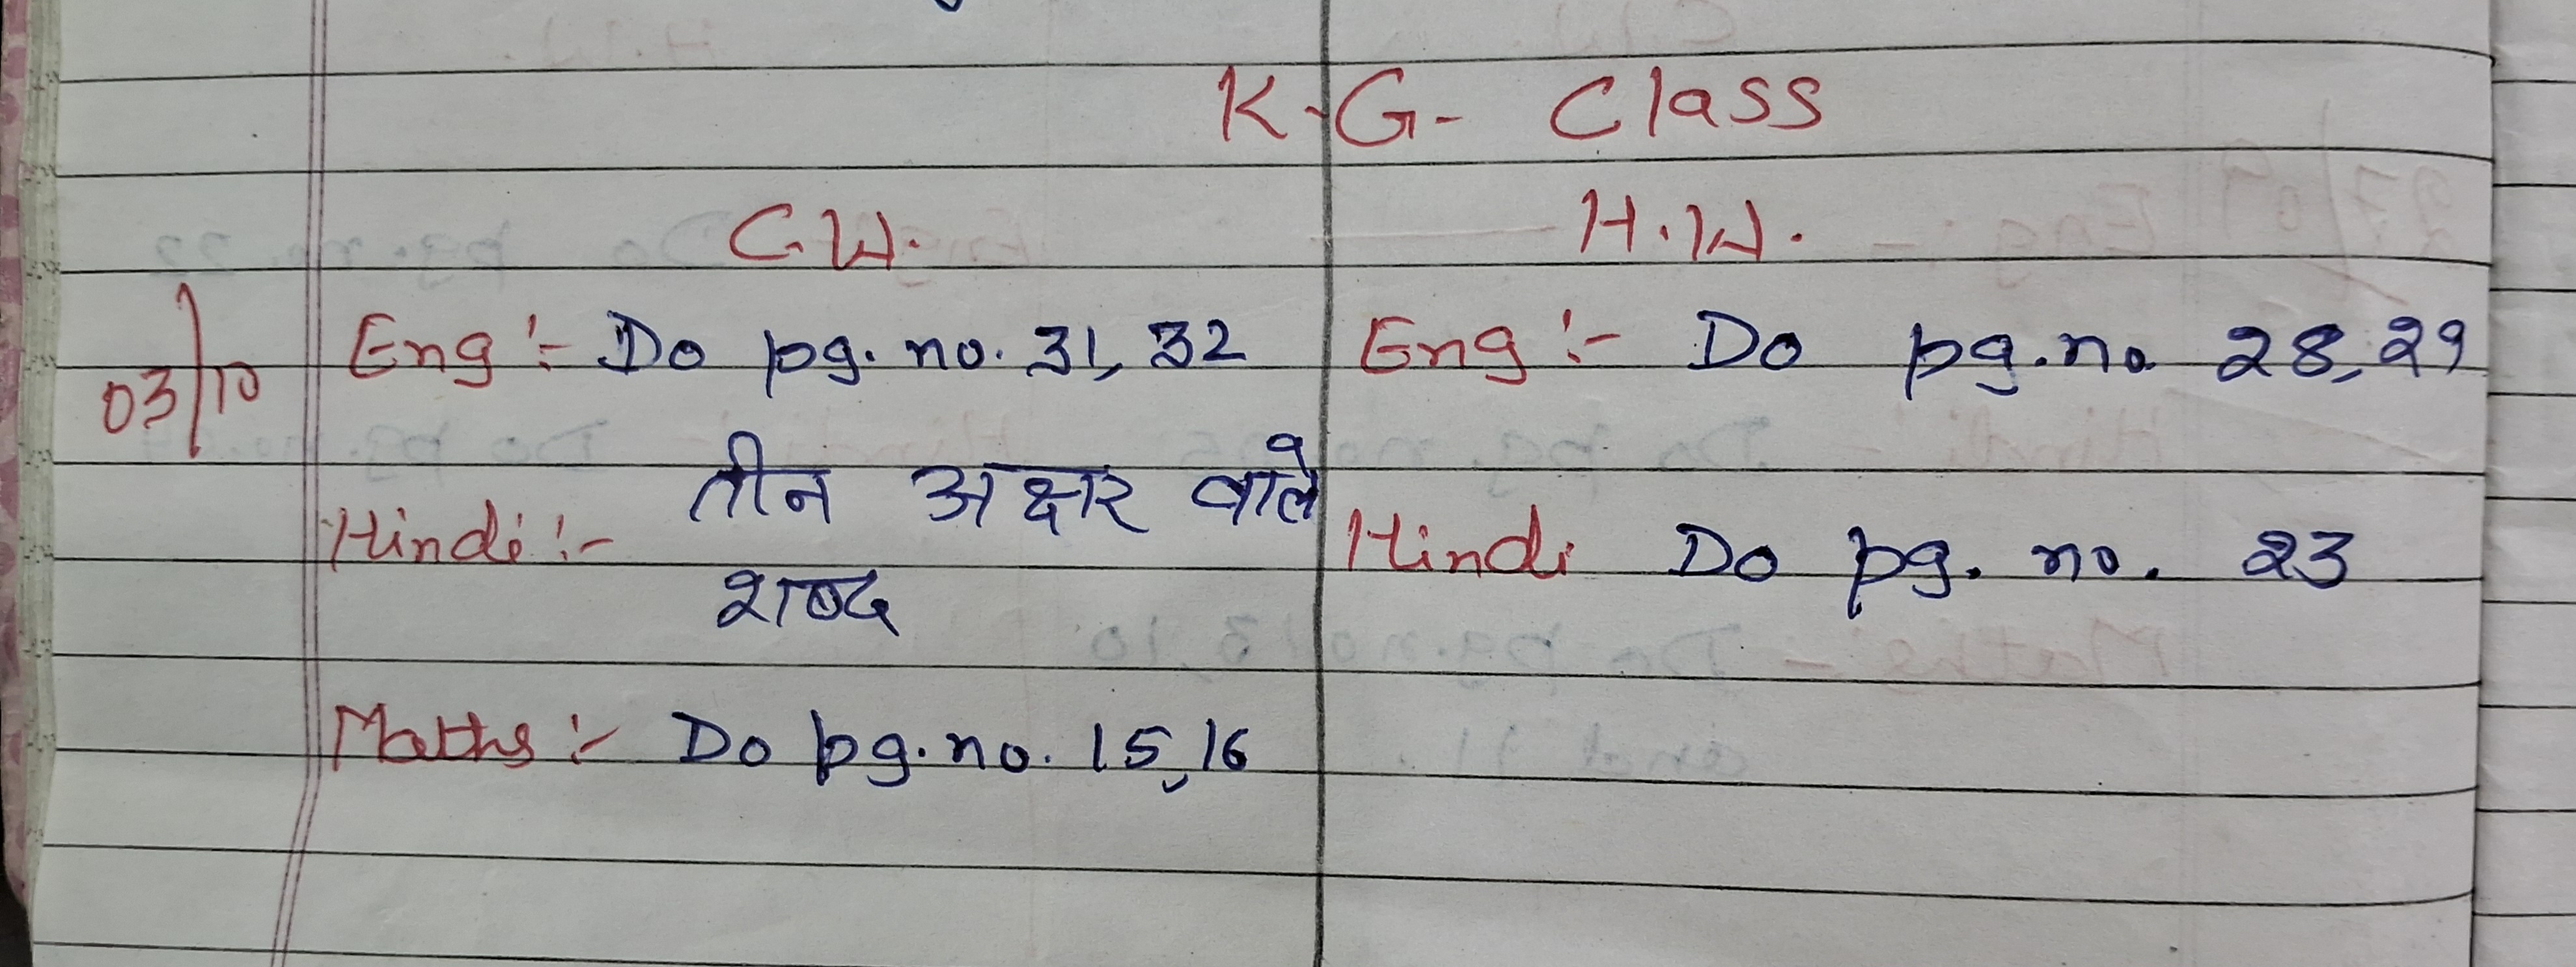 K.G- Class
C.W. H.W.
03/10 Eng :- Do pg. no. 31, 32 Eng :- Do pg. no. 28, 29
Hindi :- तीन अक्षर वाले Hindi Do pg. no. 23
शब्द
Maths :- Do pg. no. 15, 16